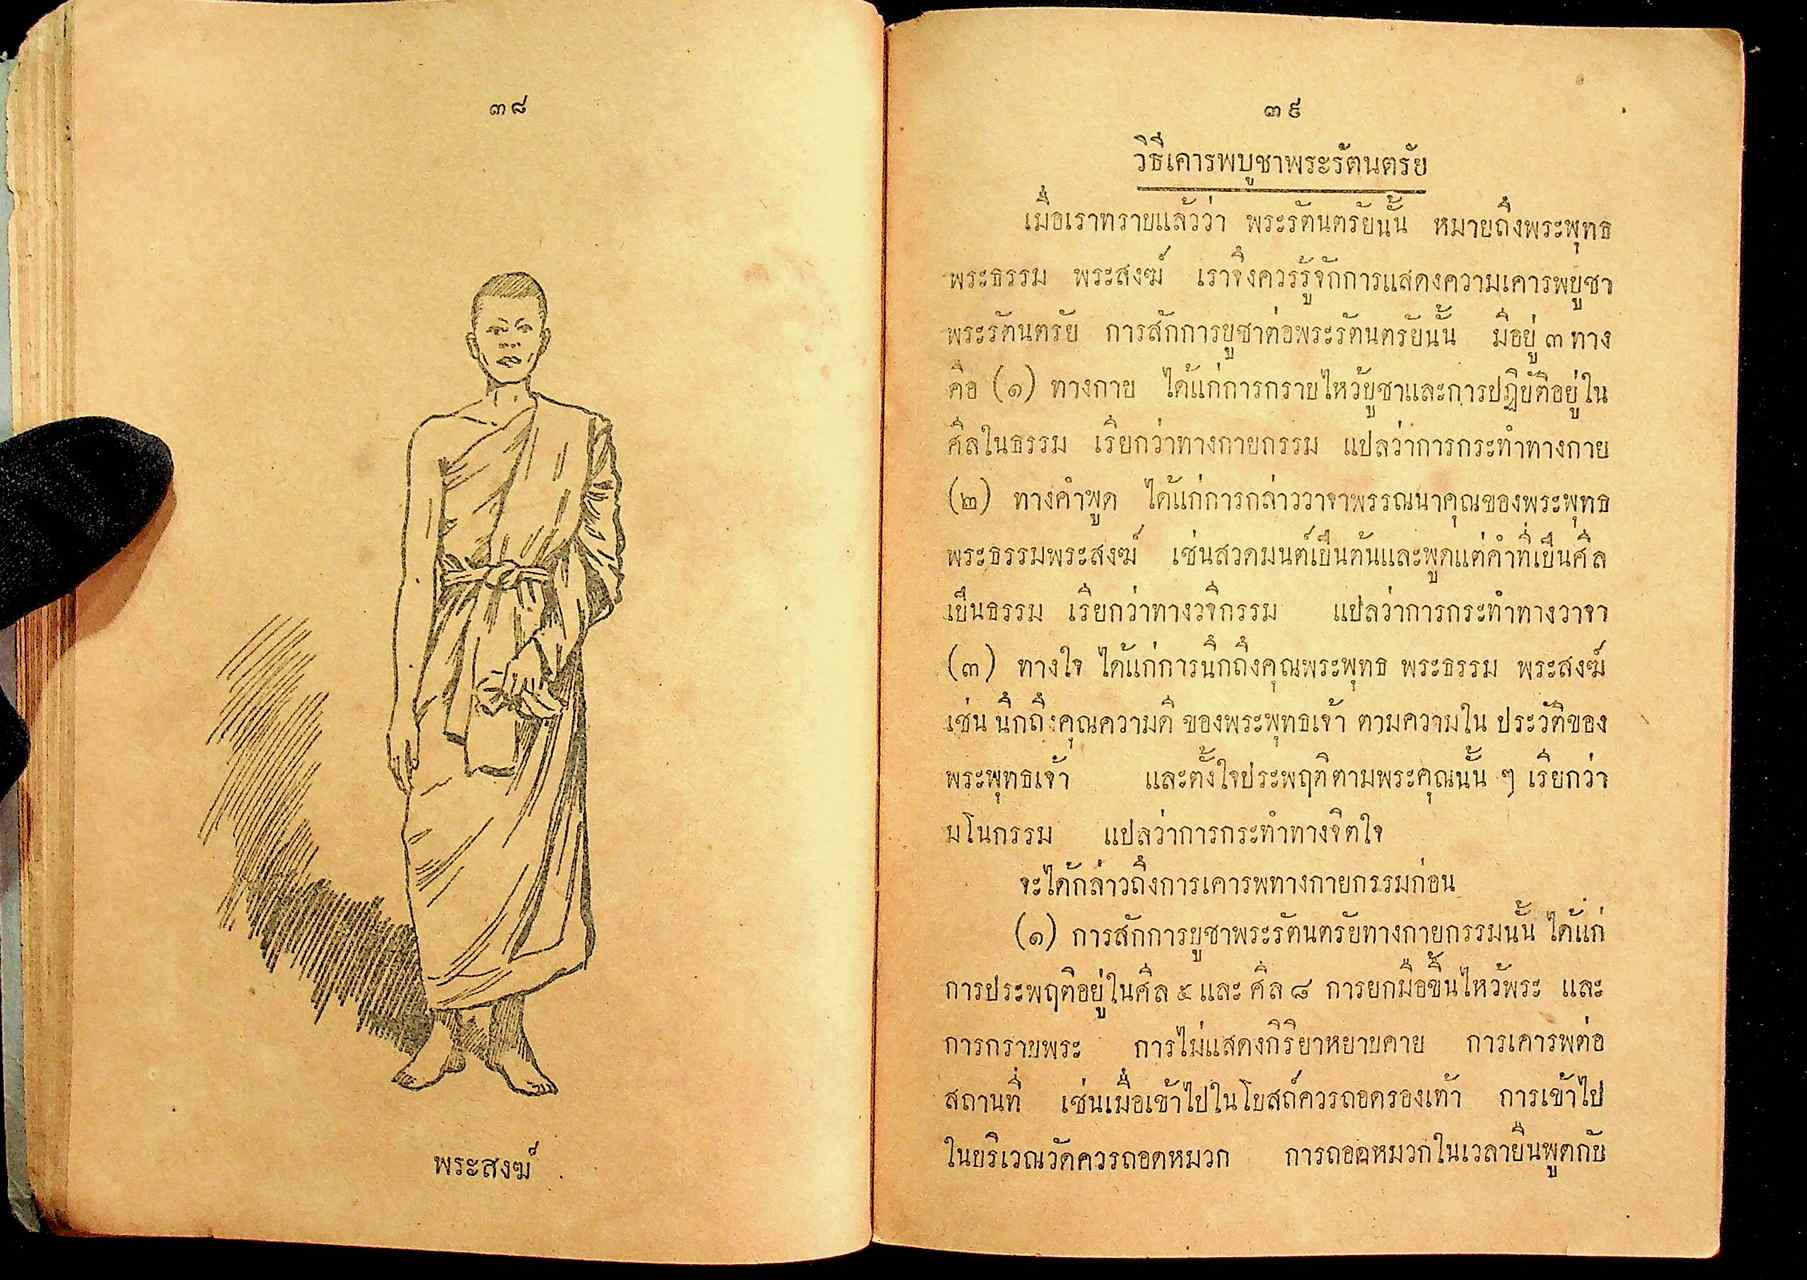 ๓๘
พระสงฆ์
๓๙
วิธีเคารพบูชาพระรัตนตรัย
เมื่อเราทราบแล้วว่า พระรัตนตรัยนั้น หมายถึงพระพุทธ
พระธรรม พระสงฆ์ เราจึงควรรู้จักการแสดงความเคารพบูชา
พระรัตนตรัย การสักการบูชาต่อพระรัตนตรัยนั้น มีอยู่ ๓ ทาง
คือ (๑) ทางกาย ได้แก่การกราบไหว้บูชาและการปฏิบัติอยู่ใน
ศีลในธรรม เรียกว่าทางกายกรรม แปลว่าการกระทำทางกาย
(๒) ทางคำพูด ได้แก่การกล่าววาจาพรรณนาคุณของพระพุทธ
พระธรรมพระสงฆ์ เช่นสวดมนต์เป็นต้นและพูดแต่คำที่เป็นศีล
เป็นธรรม เรียกว่าทางวจีกรรม แปลว่าการกระทำทางวาจา
(๓) ทางใจ ได้แก่การนึกถึงคุณพระพุทธ พระธรรม พระสงฆ์
เช่น นึกถึงคุณความดี ของพระพุทธเจ้า ตามความใน ประวัติของ
พระพุทธเจ้า และตั้งใจประพฤติตามพระคุณนั้น ๆ เรียกว่า
มโนกรรม แปลว่าการกระทำทางจิตใจ
จะได้กล่าวถึงการเคารพทางกายกรรมก่อน
(๑) การสักการบูชาพระรัตนตรัยทางกายกรรมนั้น ได้แก่
การประพฤติอยู่ในศีล ๕ และ ศีล ๘ การยกมือขึ้นไหว้พระ และ
การกราบพระ การไม่แสดงกิริยาหยาบคาย การเคารพต่อ
สถานที่ เช่นเมื่อเข้าไปในโบสถ์ควรถอดรองเท้า การเข้าไป
ในบริเวณวัดควรถอดหมวก การถอดหมวกในเวลายืนพูดกับ